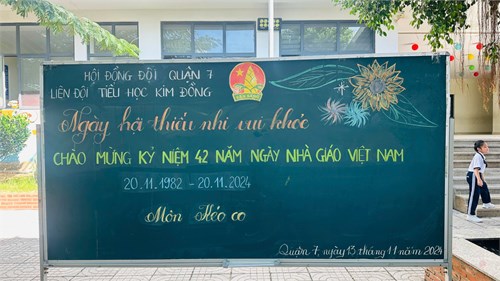 HỘI ĐỒNG ĐỘI QUẬN 7
LIÊN ĐỘI TIỂU HỌC KIM ĐỒNG
Ngày hội thiếu nhi vui khỏe
CHÀO MỪNG KỶ NIỆM 42 NĂM NGÀY NHÀ GIÁO VIỆT NAM
20.11.1982 - 20.11.2024
Môn Kéo co
Quận 7, ngày 13 tháng 11 năm 2024